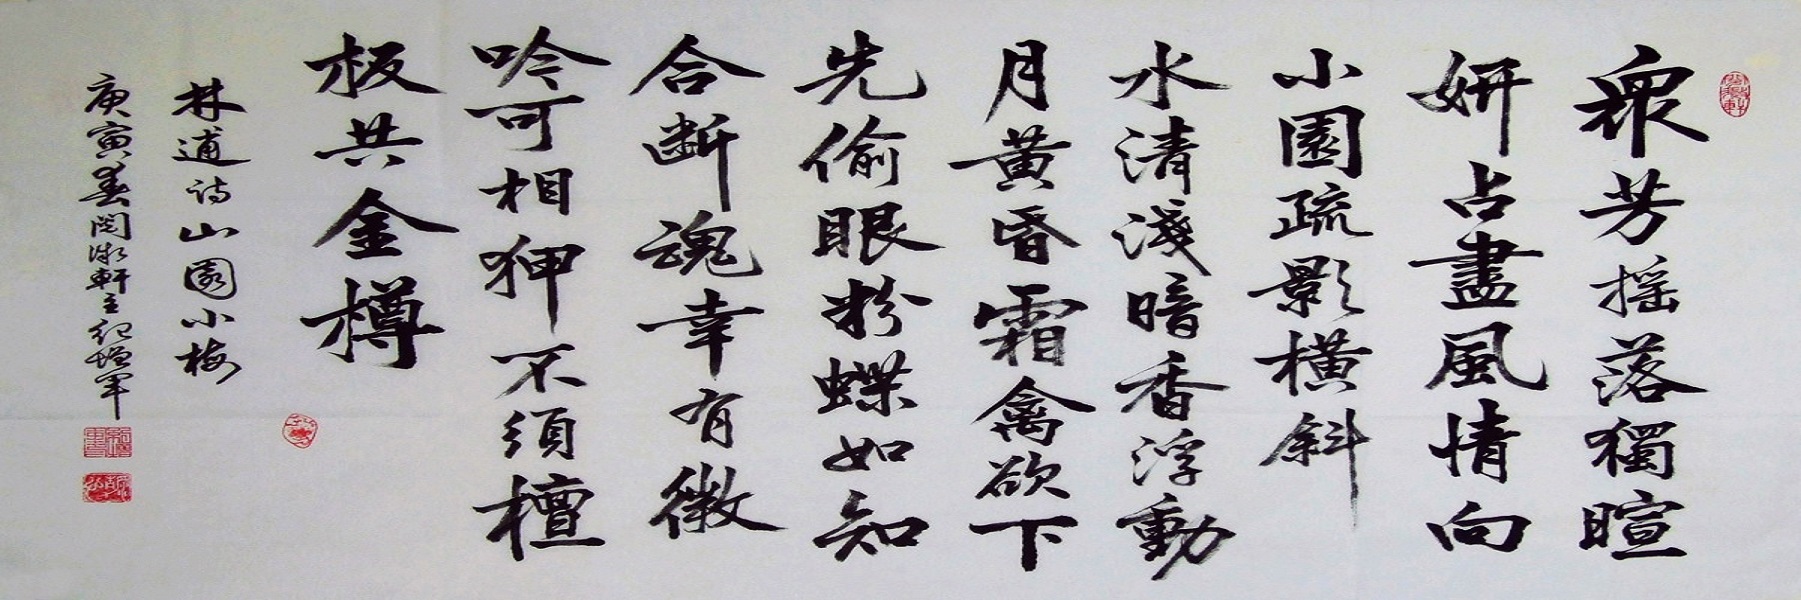 衆芳摇落獨暄
妍占盡風情向
小園疏影橫斜
水清淺暗香浮動
月黃昏霜禽欲下
先偷眼粉蝶如知
合断魂幸有微
吟可相狎不須檀
板共金樽
林逋诗山園小梅
庚寅春閱微軒主纪增军